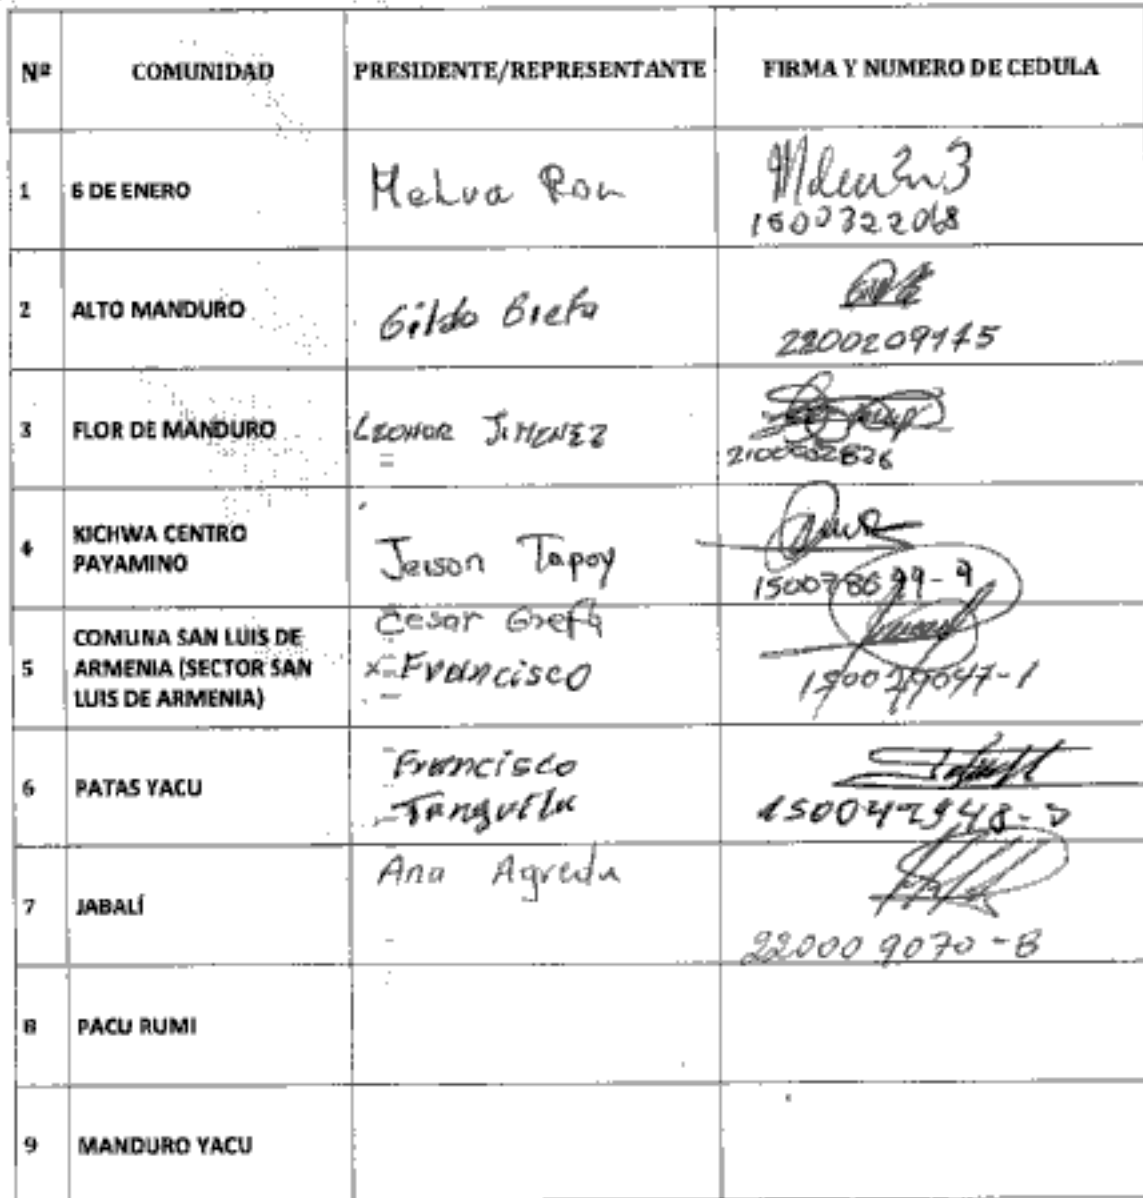 Nº COMUNIDAD PRESIDENTE/REPRESENTANTE FIRMA Y NUMERO DE CEDULA
1 6 DE ENERO Melva Ron
1500322068
2 ALTO MANDURO Gildo Grefa
2200209175
3 FLOR DE MANDURO LEONOR JIMENEZ
4 KICHWA CENTRO
PAYAMINO
Jeison Tapoy
5 COMUNA SAN LUIS DE
ARMENIA (SECTOR SAN
LUIS DE ARMENIA)
Cesar Grefa
Francisco
6 PATAS YACU
Francisco
Tanguila
7 JABALÍ Ana Agreda
220009070-8
8 PACU RUMI
9 MANDURO YACU